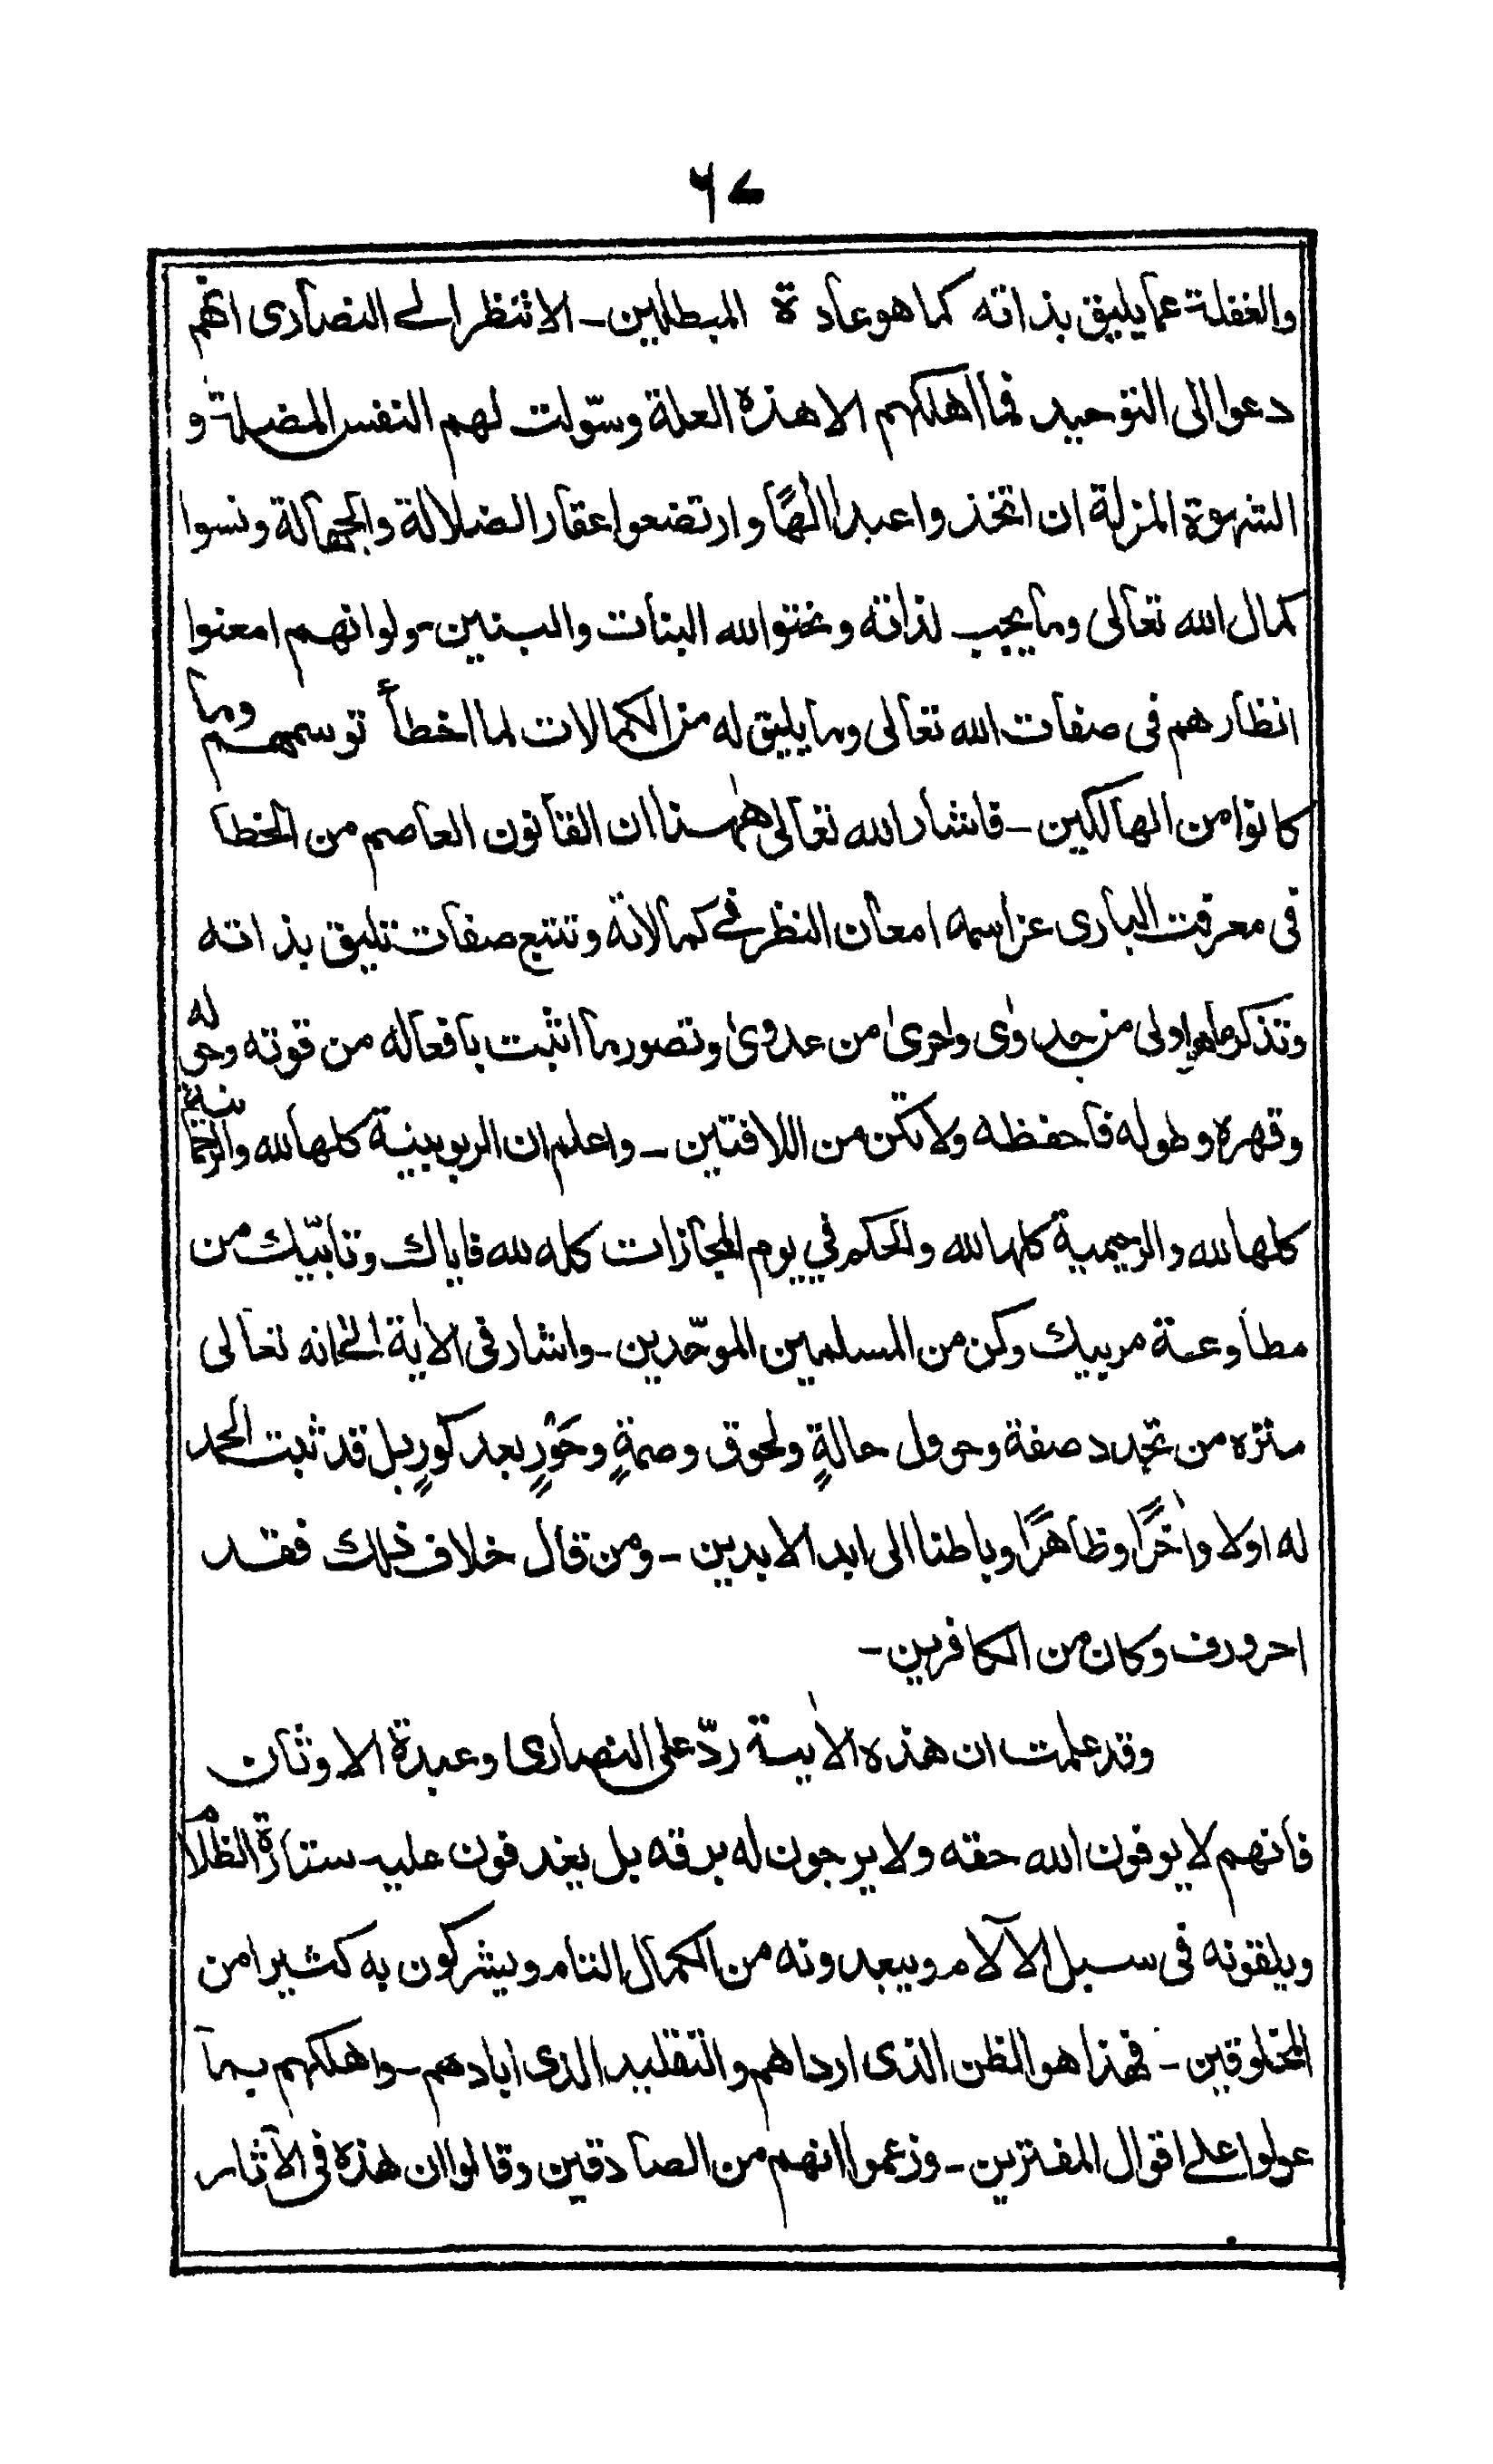 ٦٧
والغفلة عما يليق بذاته كما هو عادة المبطلين - الا تنظر الى النصارى انهم
دعوا الى التوحيد فما اهلكهم الا هذه العلة وسوّلت لهم النفس المضلة و
الشهوة المزلة ان اتخذوا عبدا الٰهًا وارتضعوا عقار الضلالة والجهالة ونسوا
كمال الله تعالى وما يجب لذاته ونحتوا لله البنات والبنين - ولو انهم امعنوا
انظارهم فى صفات الله تعالى وما يليق له من الكمالات لما اخطأ توسمهم وما
كانوا من الهالكين - فاشار الله تعالى ههٰنا ان القانون العاصم من الخطا
فى معرفت البارى عز اسمه امعان النظر فى كمالاته وتتبع صفات تليق بذاته
وتذكر ما هو اولى من جدوٰى واحرىٰ من عدوىٰ وتصور ما اثبت بافعاله من قوته وحوله
وقهره وطوله فاحفظه ولا تكن من اللافتين - واعلم ان الربوبية كلها لله والرحمانية
كلها لله والرحيمية كلها لله والحكم في يوم المجازات كله لله فاياك وتأبّيك من
مطاوعة مربيك وكن من المسلمين الموحّدين - واشار فى الاٰية الى انه تعالى
منزه من تجدد صفة وحوول حالةٍ ولحوق وصمةٍ وحَوْرٍ بعد كورٍ بل قد ثبت الحمد
له اولا واٰخرًا وظاهرًا وباطنا الى ابد الابدين - ومن قال خلاف ذلك فقد
احرورف وكان من الكافرين -
وقد علمت ان هذه الاٰية ردّ على النصارى وعبدة الاوثان
فانهم لا يوفون الله حقه ولا يرجون له برقه بل يغدفون عليه ستارة الظلام
ويلقونه فى سبل الآلام ويبعدونه من الكمال التام ويشركون به كثيرا من
المخلوقين - فهذا هو الظن الذى ارداهم والتقليد الذى ابادهم - واهلكهم بما
عولوا على اقوال المفترين - وزعموا انهم من الصادقين وقالوا ان هذه فى الآثار